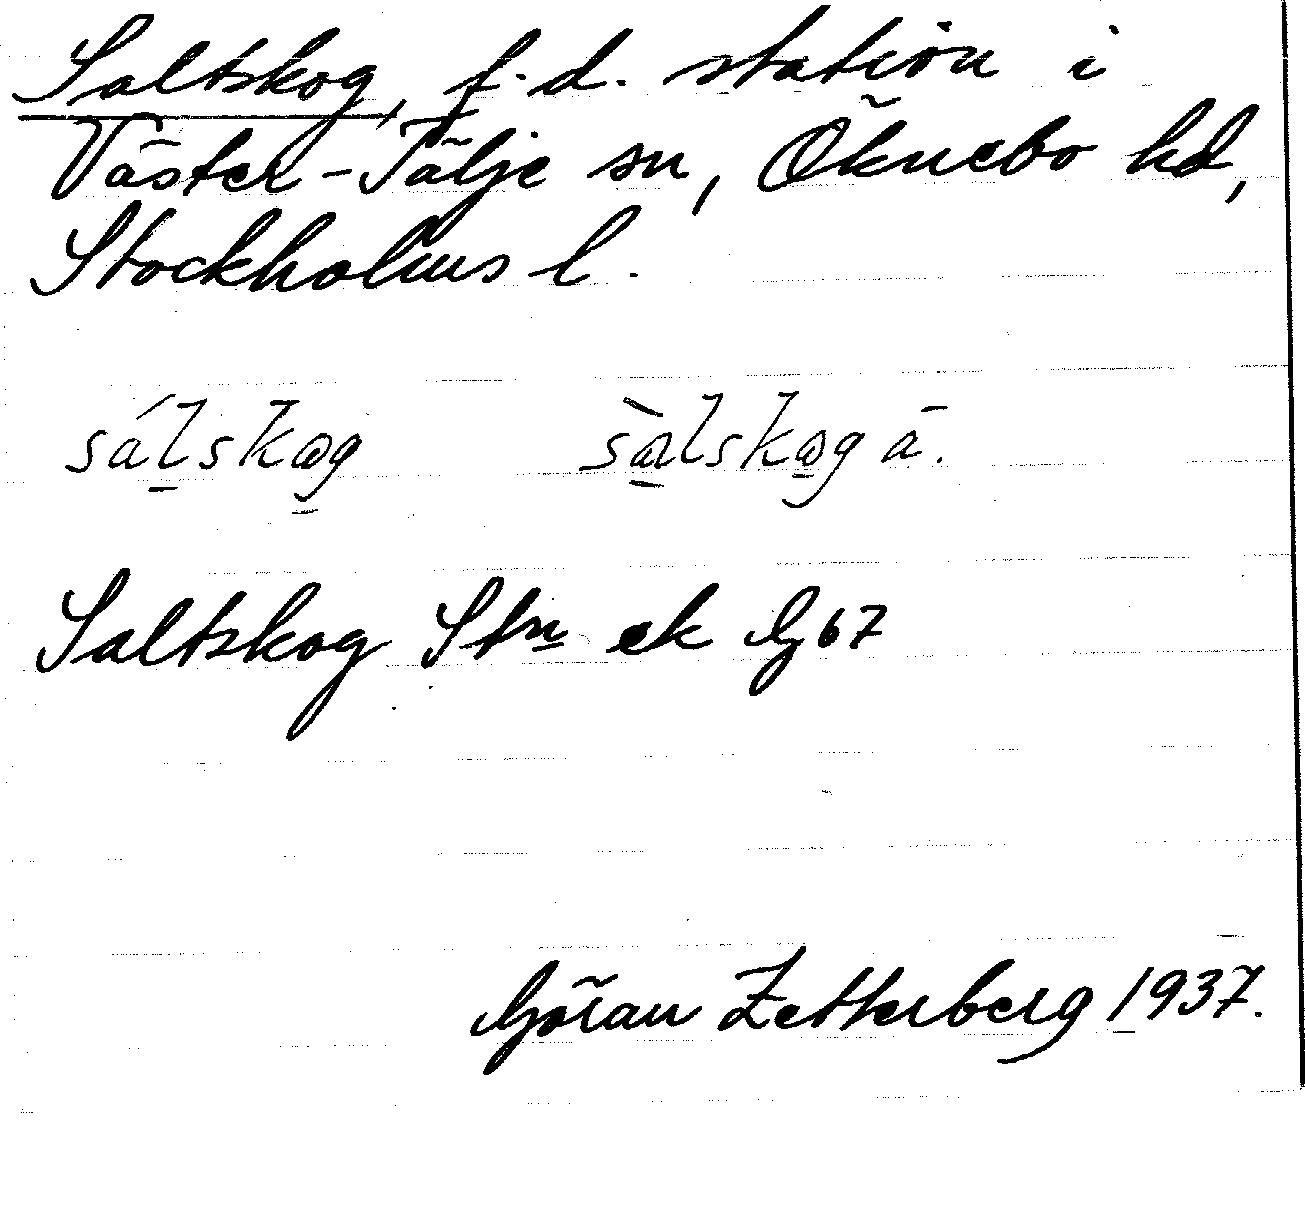 Saltskog, f.d. station i
Väster-Tälje sn, Öknebo hd,
Stockholms l.
sálskog sàlskog ä.
Saltskog Stn ek G 67
Göran Zetterberg 1937.